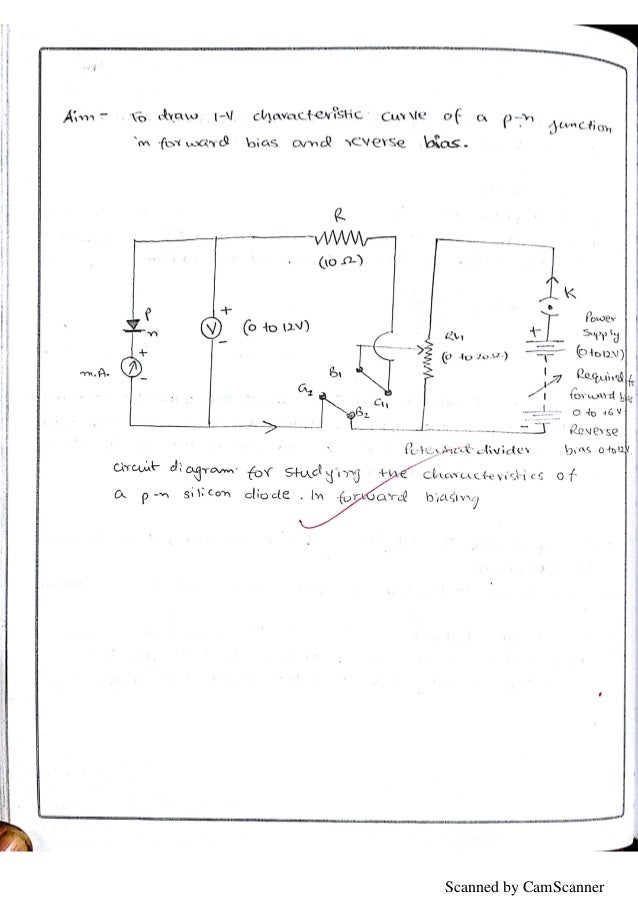 Aim - To draw I-V characteristic curve of a p-n junction
in forward bias and reverse bias.
R
(10 Ω)
P
n
+
m.A.
-
+
V
-
(0 to 12V)
B1
G1
G2
B2
Rh
(0 to 20Ω)
K
+
-
Power
Supply
(0 to 12V)
Required to
forward bias
0 to +6V
Reverse
bias 0 to 12V
Potential divider
circuit diagram for studying the characteristics of
a p-n silicon diode. In forward biasing
Scanned by CamScanner